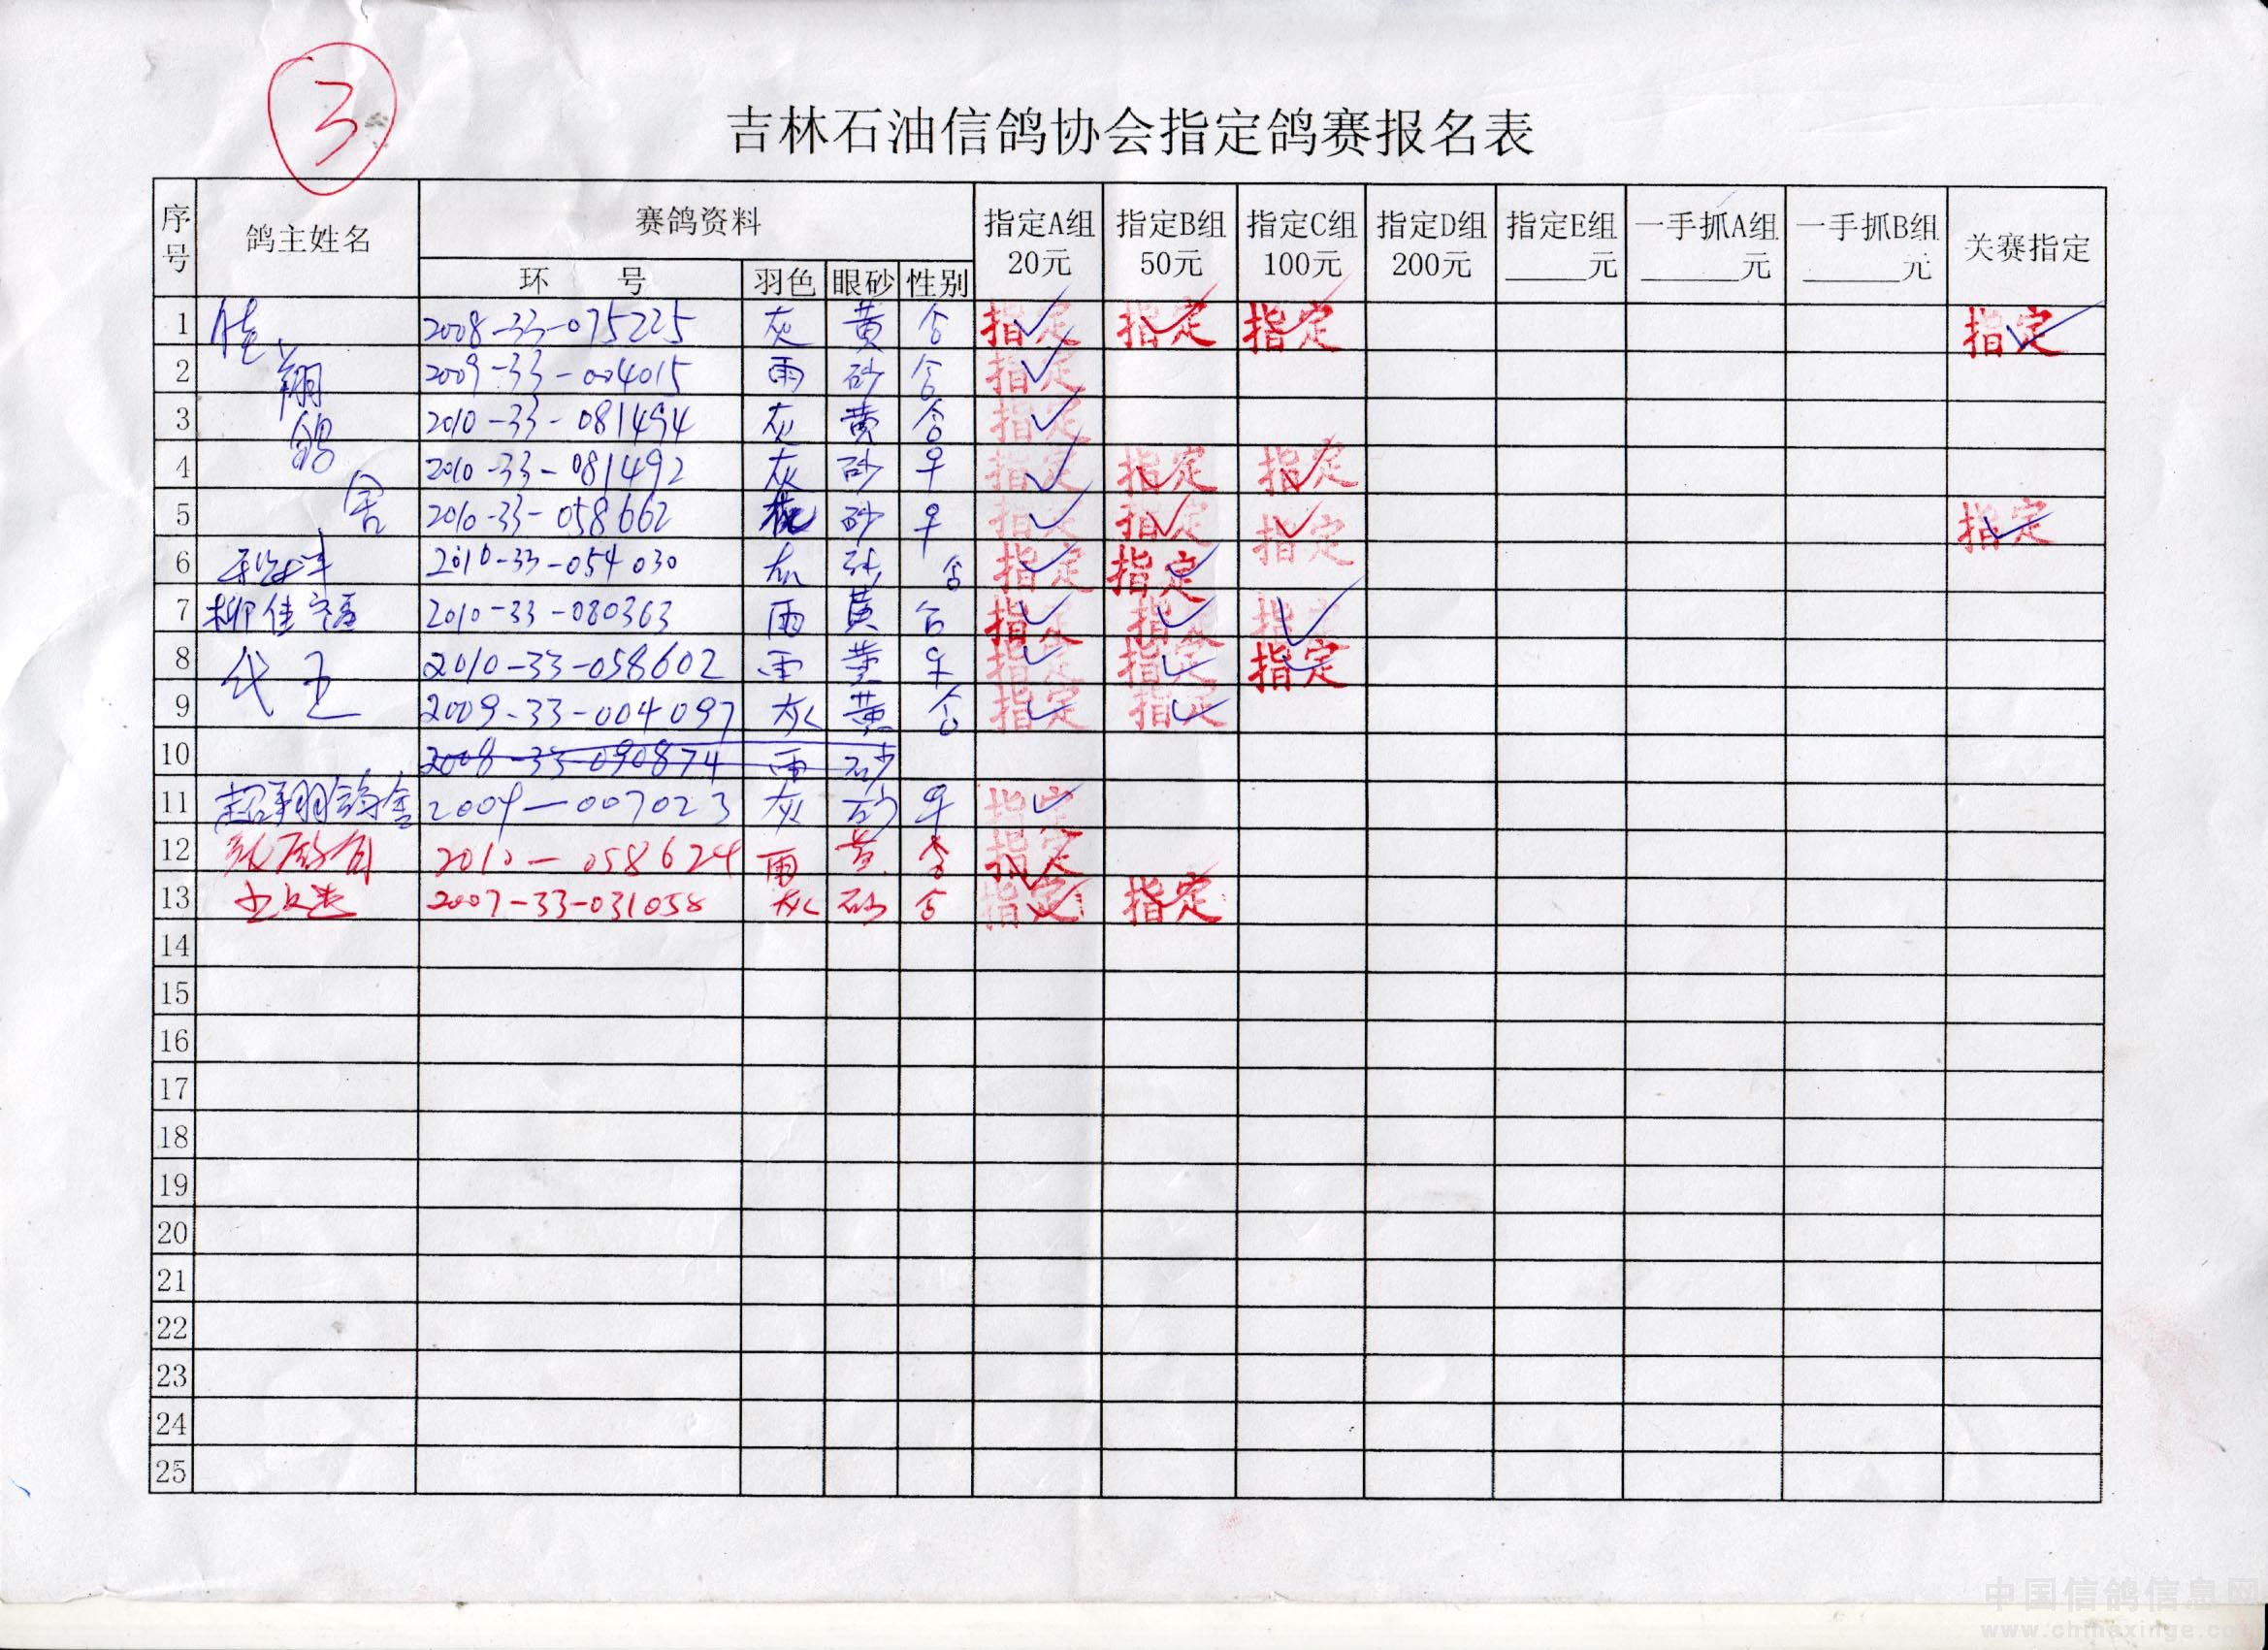 3
吉林石油信鸽协会指定鸽赛报名表
序号 鸽主姓名 赛鸽资料 指定A组 20元 指定B组 50元 指定C组 100元 指定D组 200元 指定E组 _____元 一手抓A组 ______元 一手抓B组 ______元 关赛指定
环 号 羽色 眼砂 性别
1 佳翔鸽舍 2008-33-075225 灰 黄 指定 指定 指定 指定
2 2009-33-004015 雨 砂 指定
3 2010-33-081494 灰 黄 指定
4 2010-33-081492 灰 砂 ♀ 指定 指定 指定
5 2010-33-058662 砂 ♀ 指定 指定 指定 指定
6 2010-33-054030 灰 砂 指定 指定
7 柳佳 2010-33-080363 雨 黄 指定 指定 指定
8 代 2010-33-058602 雨 黄 ♀ 指定 指定 指定
9 2009-33-004097 灰 黄 指定 指定
10 2008-33-090874 雨 砂
11 超翔鸽舍 2009-007023 灰 砂 ♀ 指定
12 2010-058624 雨 黄 指定
13 2007-33-031058 灰 砂 指定 指定
14
15
16
17
18
19
20
21
22
23
24
25
中国信鸽信息网
www.chinaxinge.com